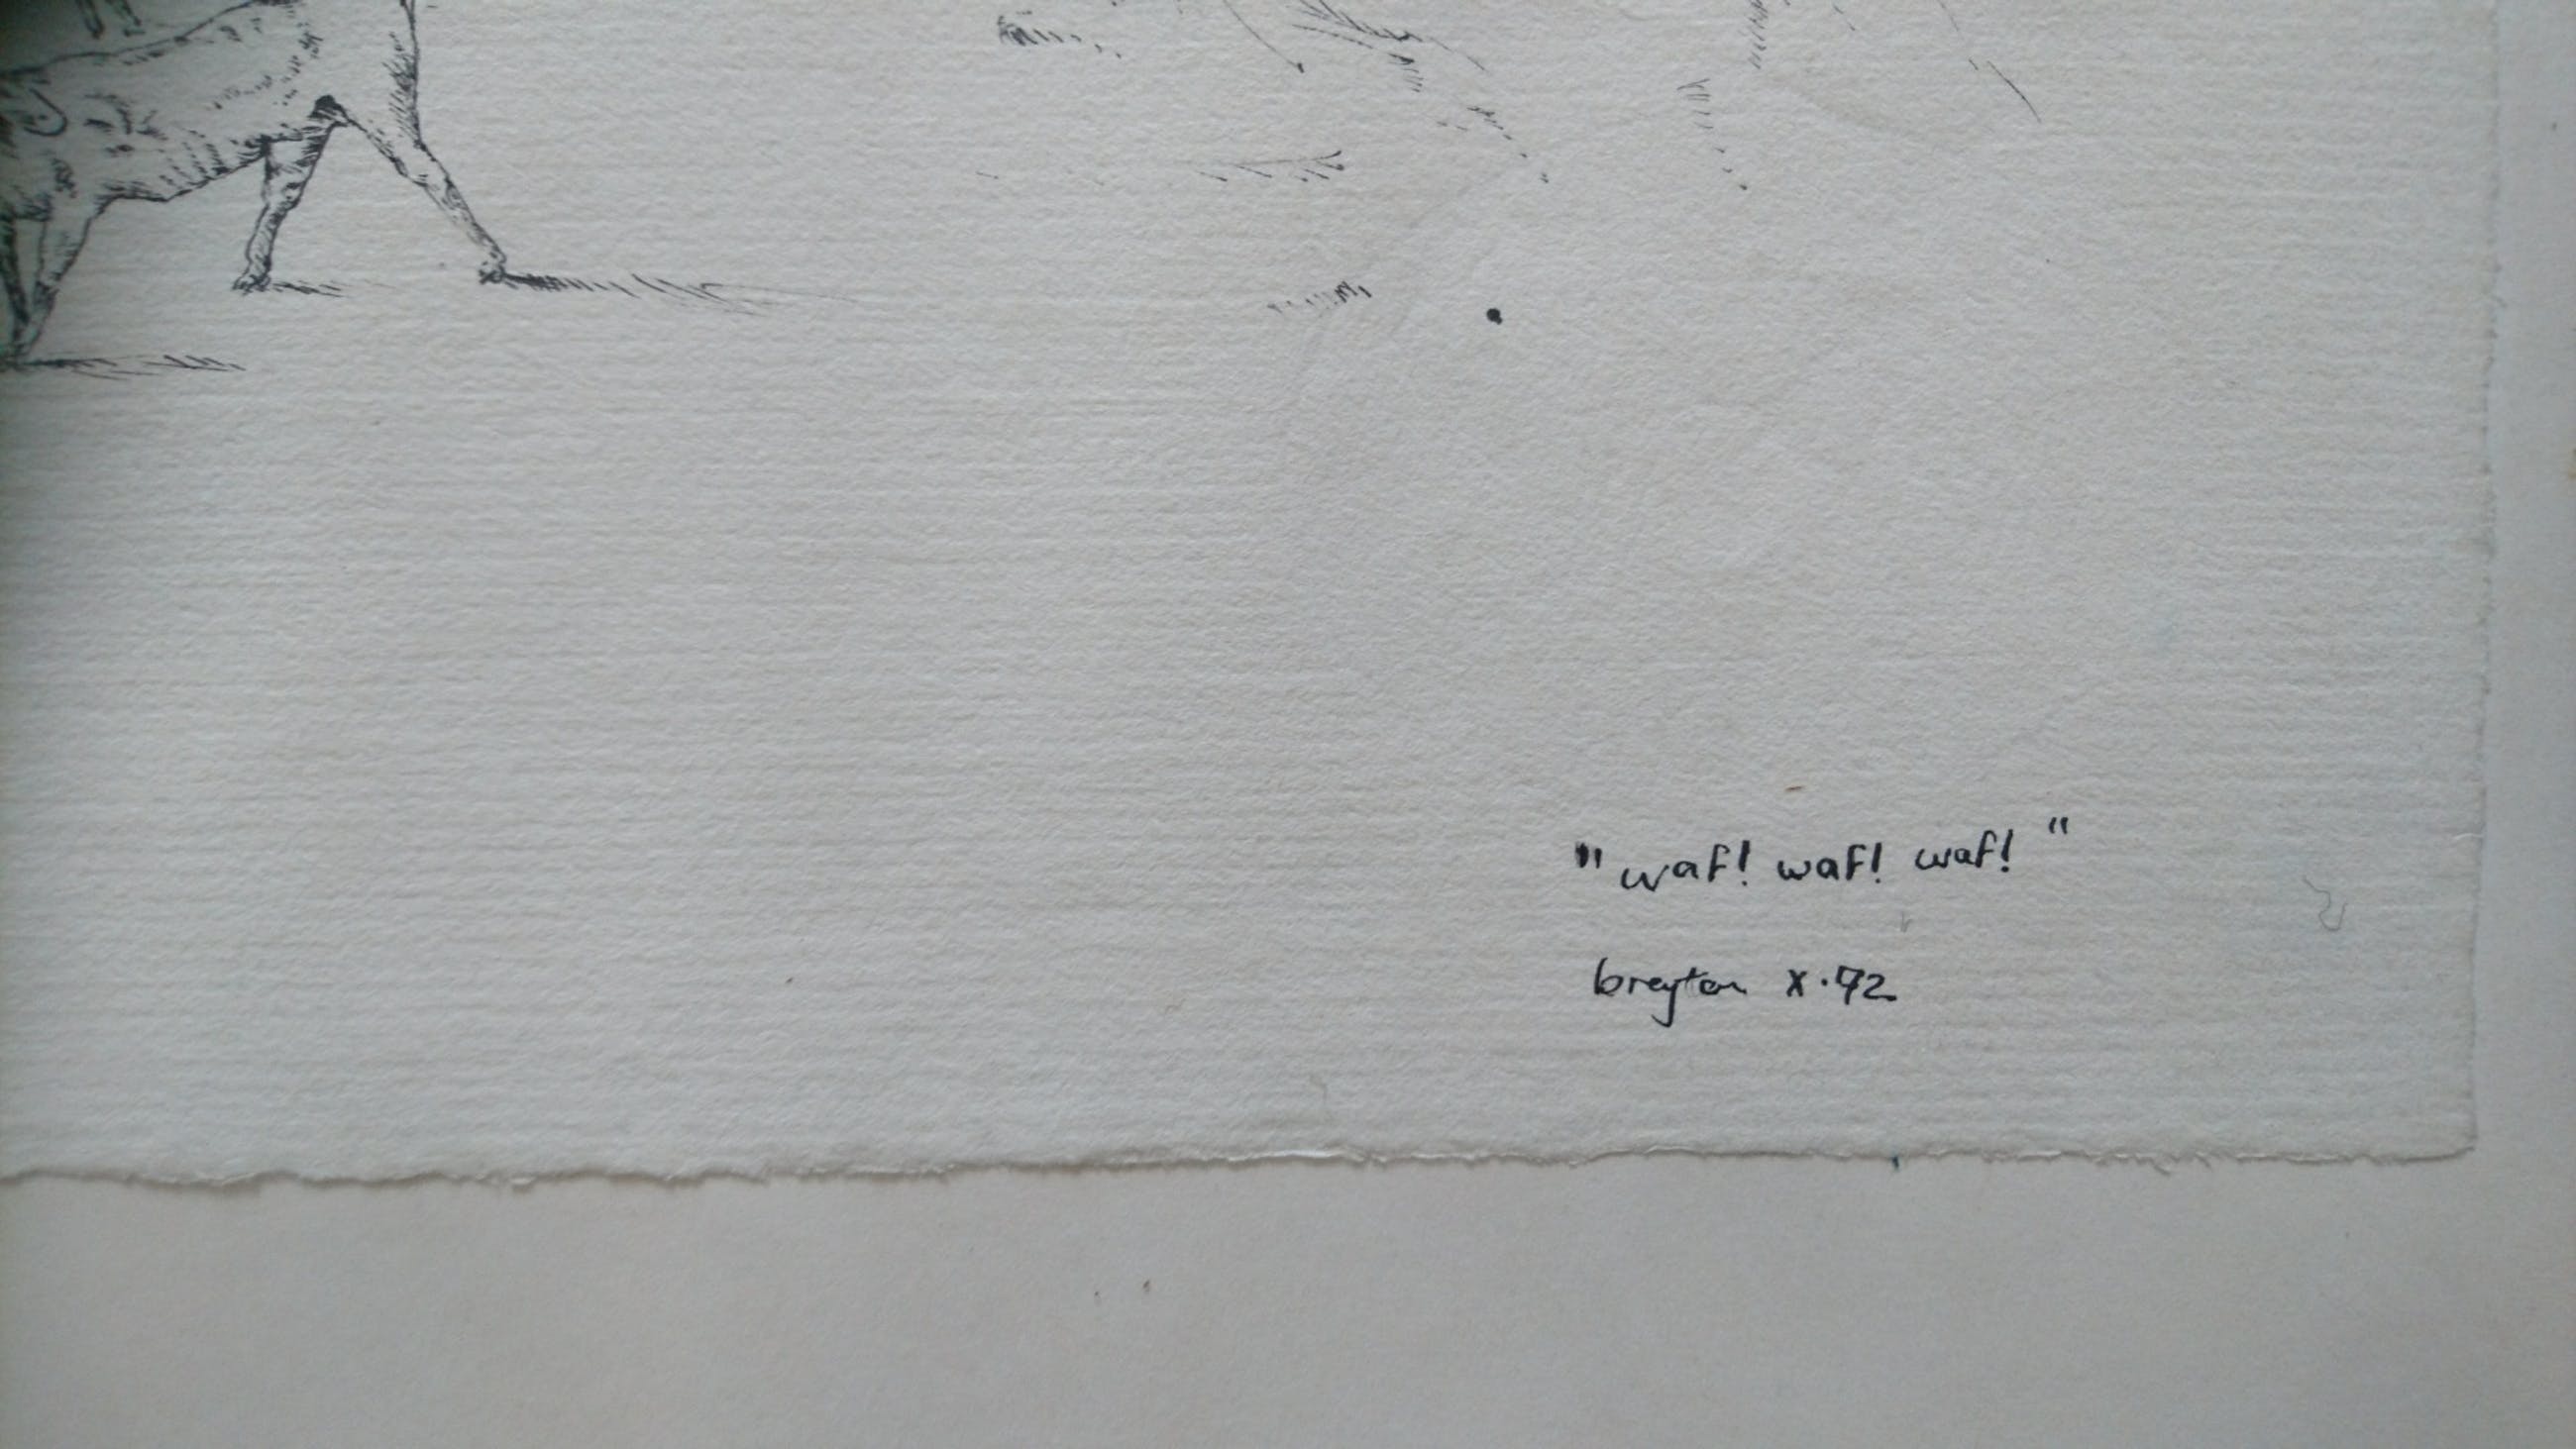 "waf! waf! waf!"
breyten x.72